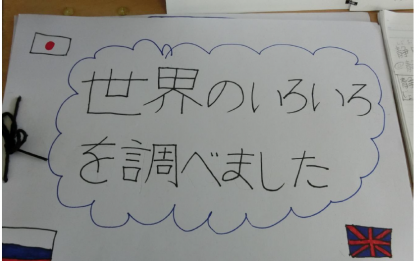 世界のいろいろ
を調べました